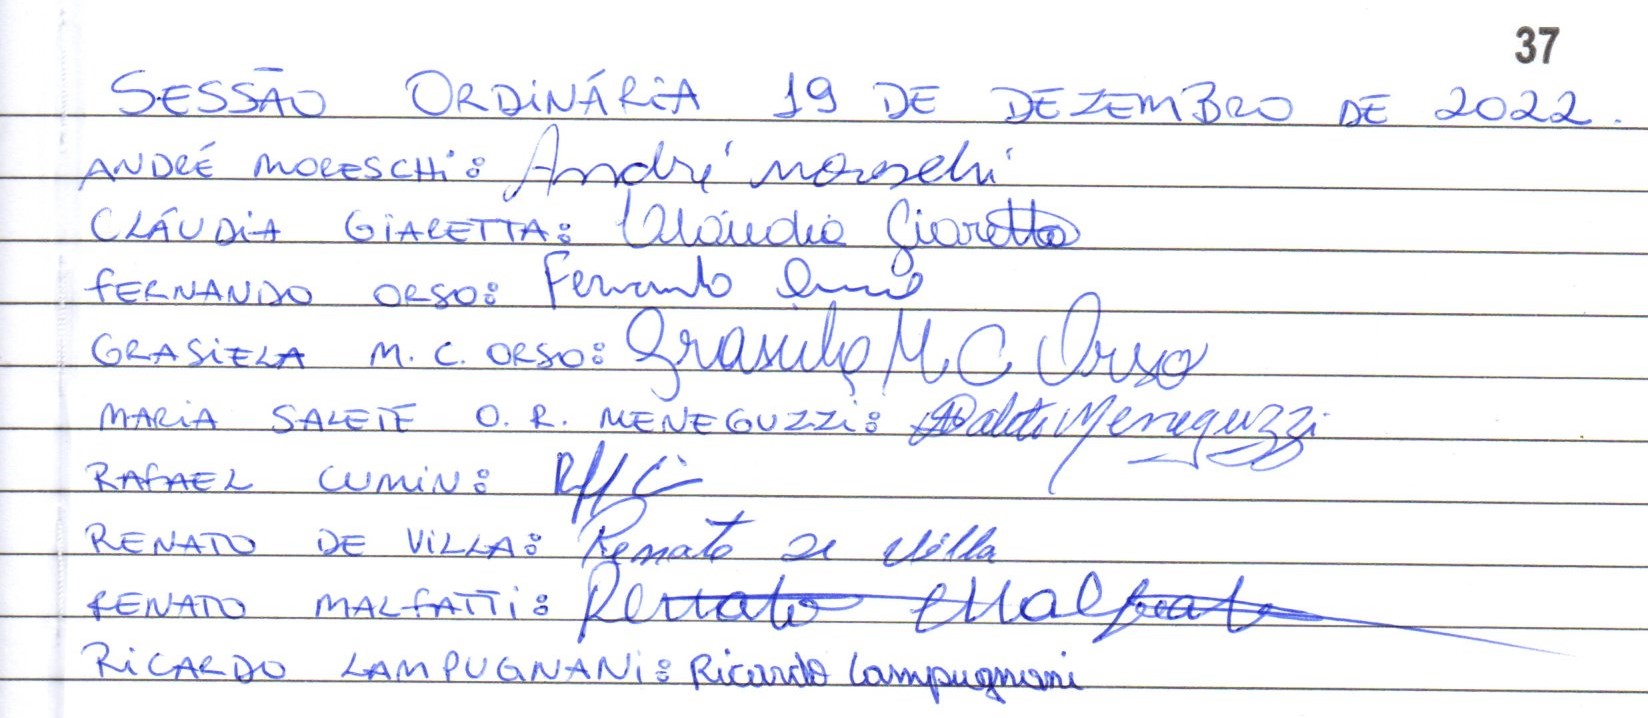 37
SESSÃO ORDINÁRIA 19 DE DEZEMBRO DE 2022.
ANDRÉ MORESCHI: André Moreschi
CLÁUDIA GIARETTA: Cláudia Giaretta
FERNANDO ORSO: Fernando Orso
GRASIELA M. C. ORSO: Grasiela M C Orso
MARIA SALETE O. R. MENEGUZZI: Salete Meneguzzi
RAFAEL CUMIN:
RENATO DE VILLA: Renato de Villa
RENATO MALFATTI: Renato Malfatti
RICARDO LAMPUGNANI: Ricardo Lampugnani